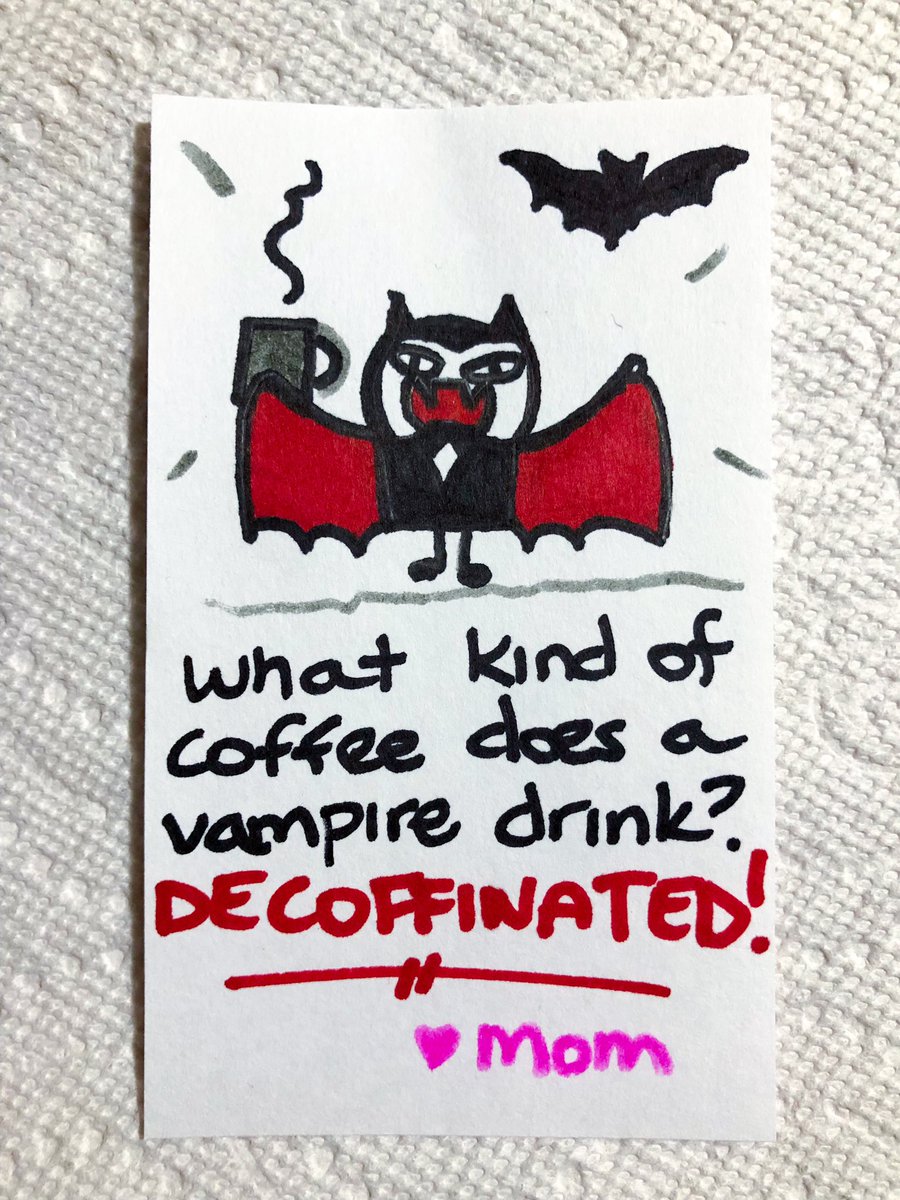 What kind of
coffee does a
vampire drink?
DECOFFINATED!
♥ Mom